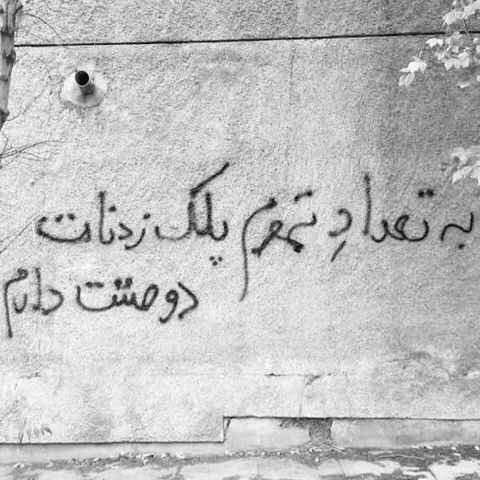 به تعدادِ تموم پلک زدنات
دوصتت دارم